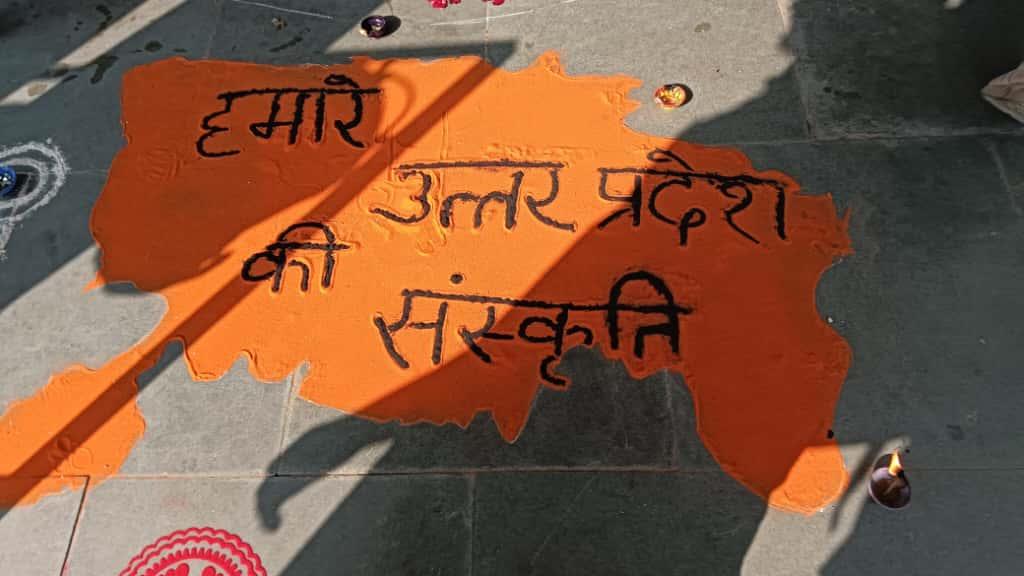 हमारे
उत्तर प्रदेश
की
संस्कृति